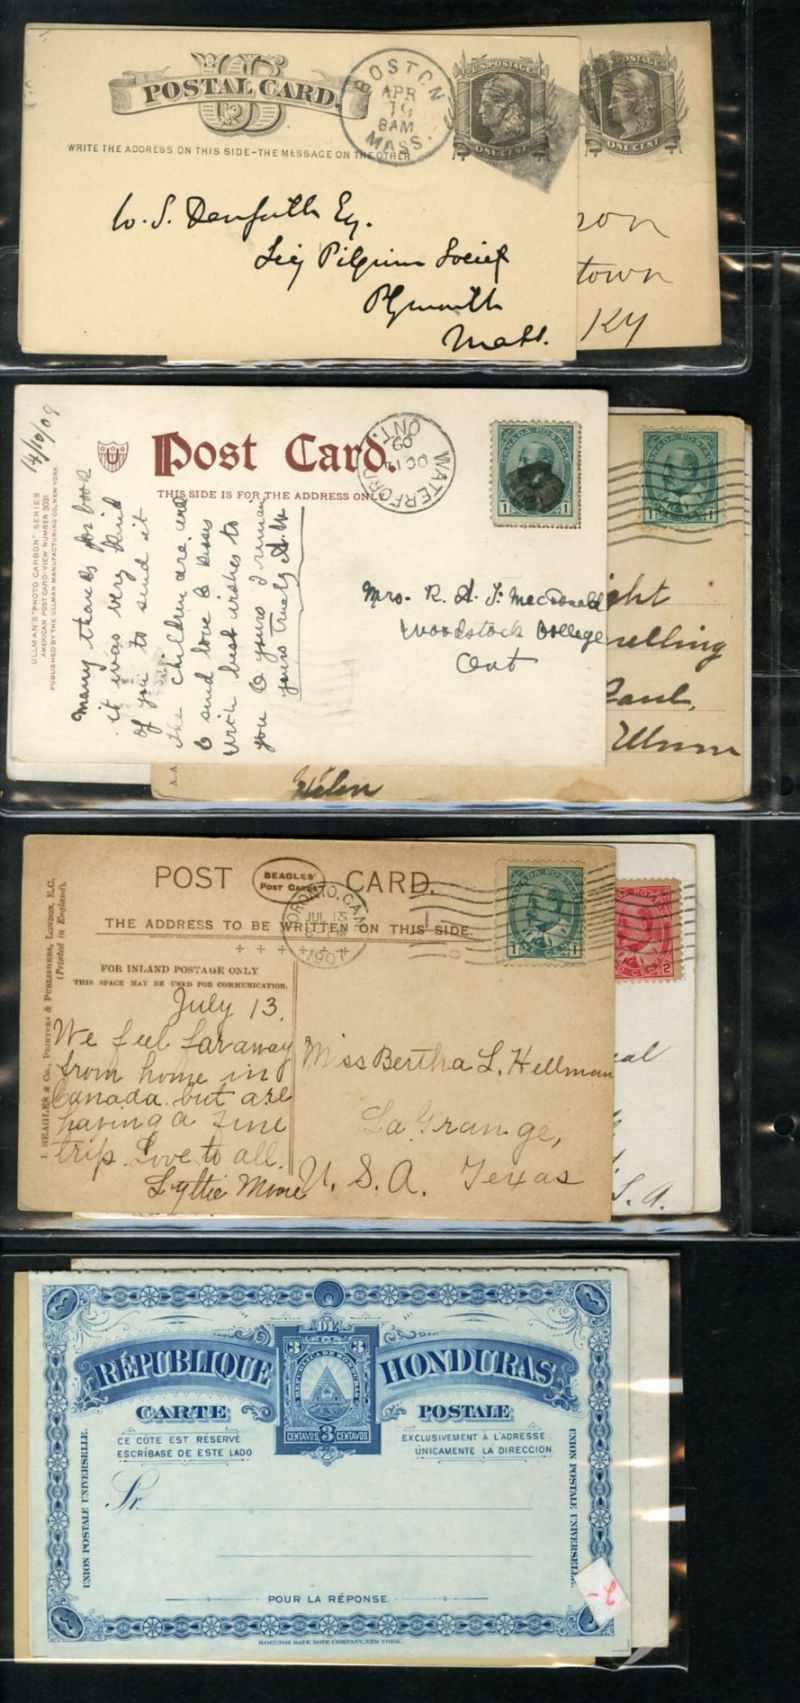 US
POSTAL CARD.
WRITE THE ADDRESS ON THIS SIDE-THE MESSAGE ON THE OTHER
BOSTON
APR
19
8AM
MASS.
U.S. POSTAGE
ONE CENT
U.S. POSTAGE
ONE CENT
W. S. Danforth Eq.
Pilgrim Societ
Plymouth
Mass.
son
town
Ky
14/10/09
U
Post Card.
THIS SIDE IS FOR THE ADDRESS ONLY
ULLMAN'S "PHOTO CARBON" SERIES
AMERICAN POST CARD-VIEW NUMBER 3031
PUBLISHED BY THE ULLMAN MANUFACTURING CO., NEW YORK.
WATERFORD
OC 14
09
ONT.
CANADA POSTAGE
1 1
CANADA POSTAGE
1 1
Many thanks for book
it was very kind
of you to send it
The children are well
& send love & kisses
with best wishes to
you & yours I remain
yours truly
Mrs. R. A. F. MacDonald
Woodstock College
Ont
ght
elling
Paul,
Minn
Helen
A. A.
POST
BEAGLES'
POST CARDS
CARD.
THE ADDRESS TO BE WRITTEN ON THIS SIDE.
FOR INLAND POSTAGE ONLY
THIS SPACE MAY BE USED FOR COMMUNICATION.
J. BEAGLES & Co., PRINTERS & PUBLISHERS, LONDON, E.C.
(Printed in England).
TORONTO, CAN.
JUL 13
190
CANADA POSTAGE
1 1
2
July 13.
We feel far away
from home in
Canada but are
having a fine
trip. Love to all.
Lyttie Moore
Miss Bertha L. Hellman
La Grange,
U. S. A. Texas
eal
S. A.
RÉPUBLIQUE
DE
HONDURAS
3 3
REPUBLICA DE HONDURAS
CENTAVOS 3 CENTAVOS
CARTE
POSTALE
CE COTE EST RESERVÉ
EXCLUSIVEMENT A L'ADRESSE
ESCRÍBASE DE ESTE LADO
ÚNICAMENTE LA DIRECCION
UNION POSTALE UNIVERSELLE.
UNION POSTALE UNIVERSELLE.
Sr.
POUR LA RÉPONSE.
HAMILTON BANK NOTE COMPANY, NEW YORK.
2-